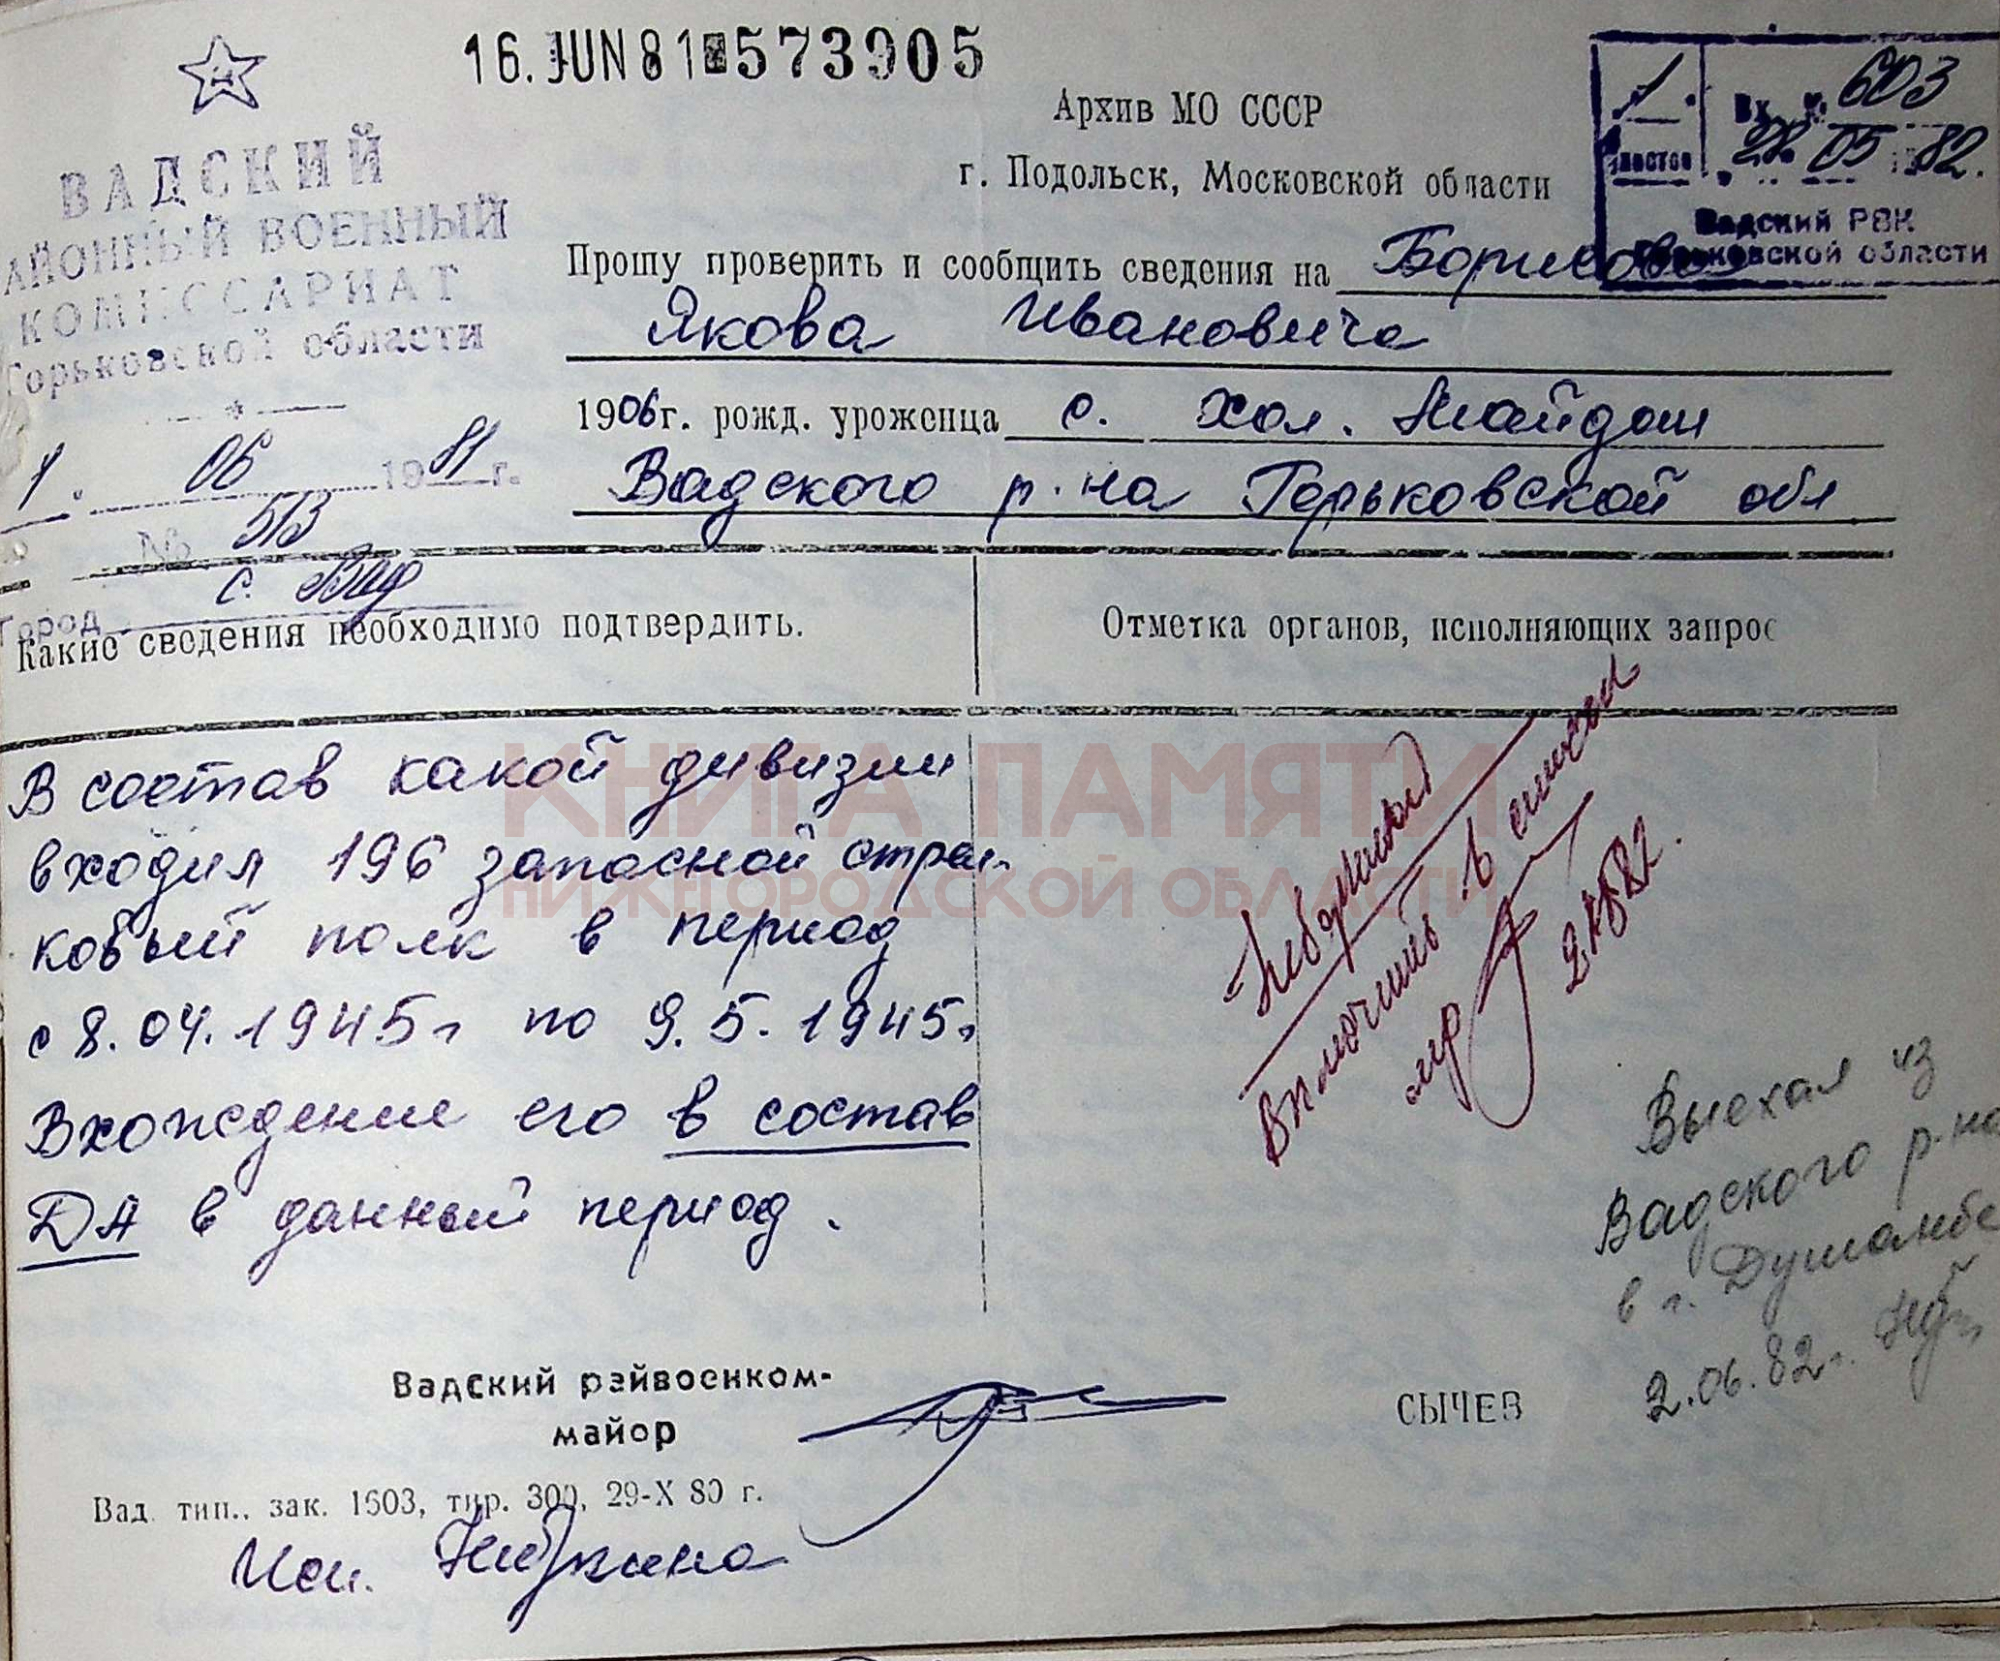 16. JUN 81 573905
ВАДСКИЙ
РАЙОННЫЙ ВОЕННЫЙ
КОМИССАРИАТ
Горьковской области
1. 06 1981 г.
№ 513
Город с. Вад
Архив МО СССР
г. Подольск, Московской области
1
листов
Вх. №. 603
28. 05 1982.
Вадский РВК
Горьковской области
Прошу проверить и сообщить сведения на Борисова
Якова Ивановича
1906 г. рожд. уроженца с. Хол. Майдан
Вадского р-на Горьковской обл
Какие сведения необходимо подтвердить.
Отметка органов, исполняющих запрос
В состав какой дивизии
входил 196 запасной стрел-
ковый полк в период
с 8.04.1945г по 9.5.1945г
Вхождение его в состав
ДА в данный период.
КНИГА ПАМЯТИ
НИЖЕГОРОДСКОЙ ОБЛАСТИ
включить в списки
Выехал из
Вадского р-на
в г. Душанбе
2.06.82г.
Вадский райвоенком-
майор
СЫЧЕВ
Вад. тип., зак. 1603, тир. 300, 29-X 80 г.
Исп.